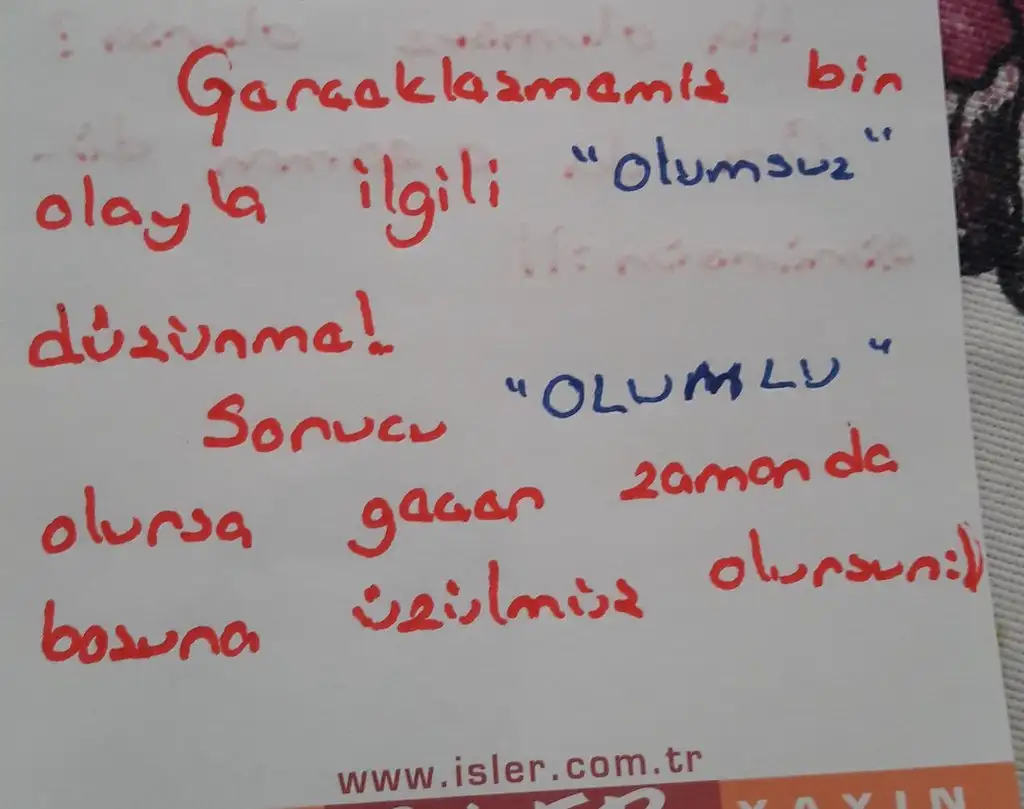 Gerçekleşmemiş bir
olayla ilgili "Olumsuz"
düşünme!
Sonucu "OLUMLU"
olursa geçen zamanda
boşuna üzülmüş olursun:))
www.isler.com.tr
YAYIN